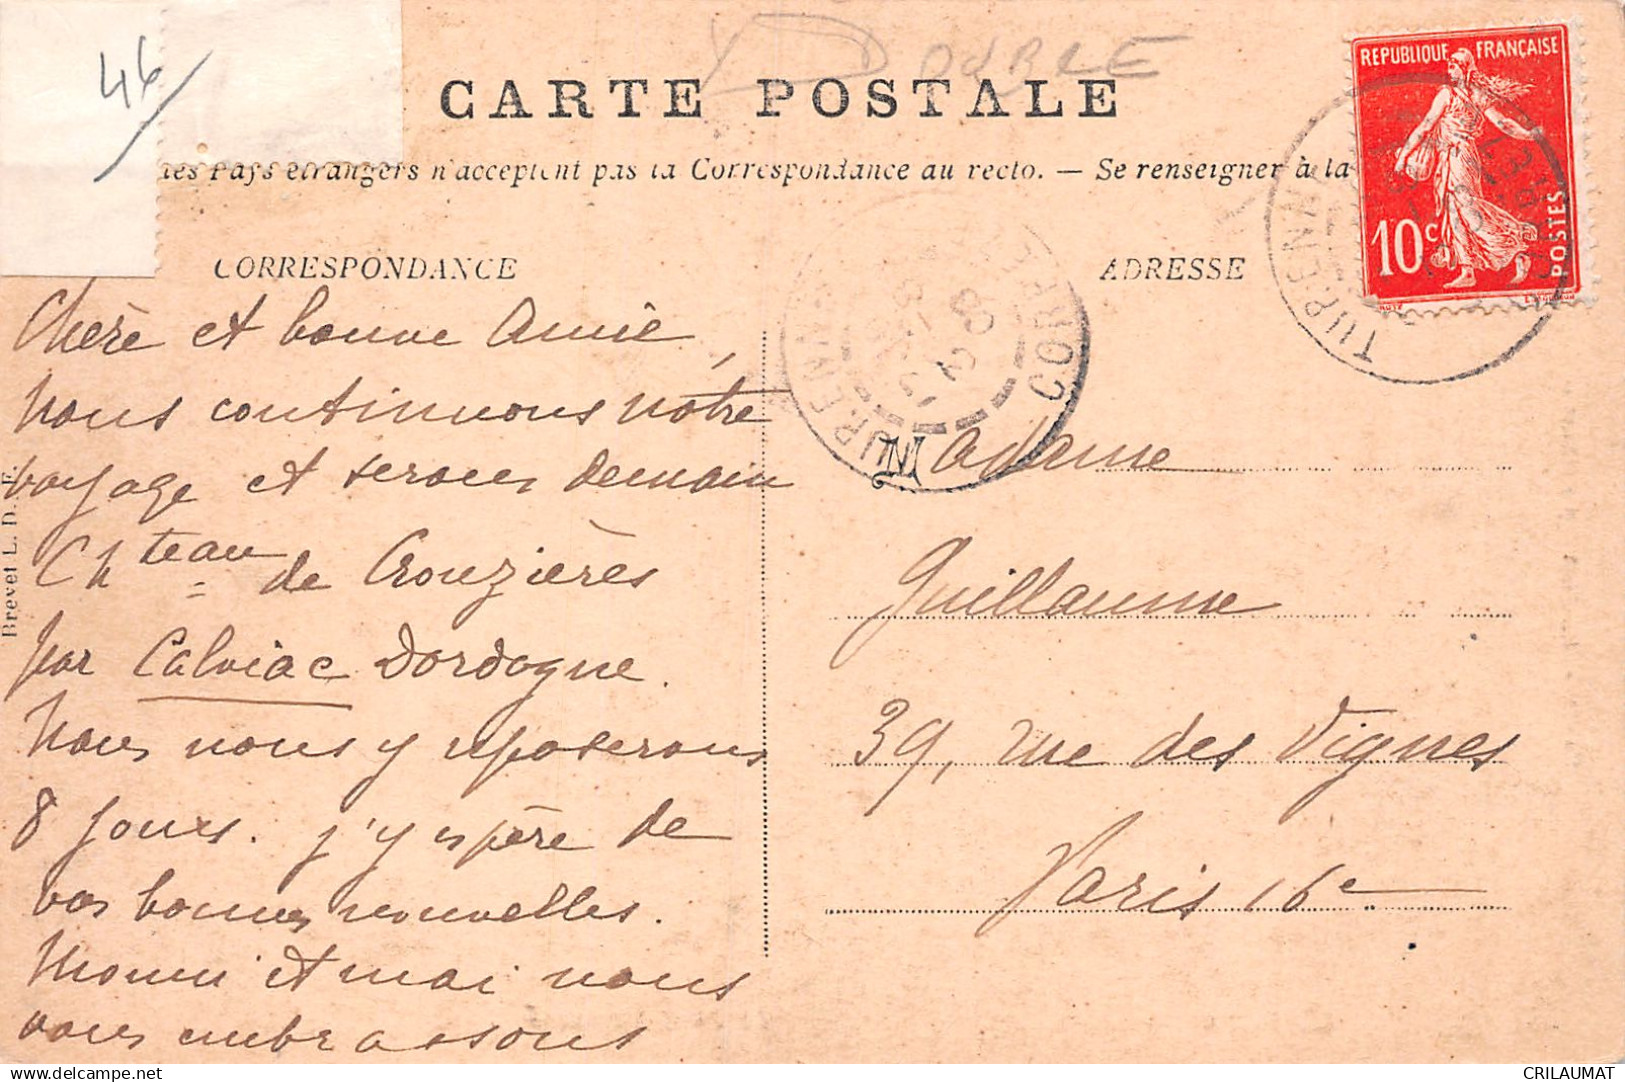 46
DOUBLE
CARTE POSTALE
les Pays étrangers n'acceptent pas la Correspondance au recto. — Se renseigner à la
REPUBLIQUE FRANÇAISE
10c
POSTES
CORRESPONDANCE
ADRESSE
TURENNE
TURENNE CORR
Chère et bonne Amie,
Nous continuons notre
voyage et serons demain
Chteau de Crouzières
par Calviac Dordogne.
Nous nous y reposerons
8 jours. j'y espère de
vos bonnes nouvelles.
et moi nous
vous embrassons
Brevet L. D. F.
Madame
Guillaume
39, rue des Vignes
Paris 16e
CRILAUMAT